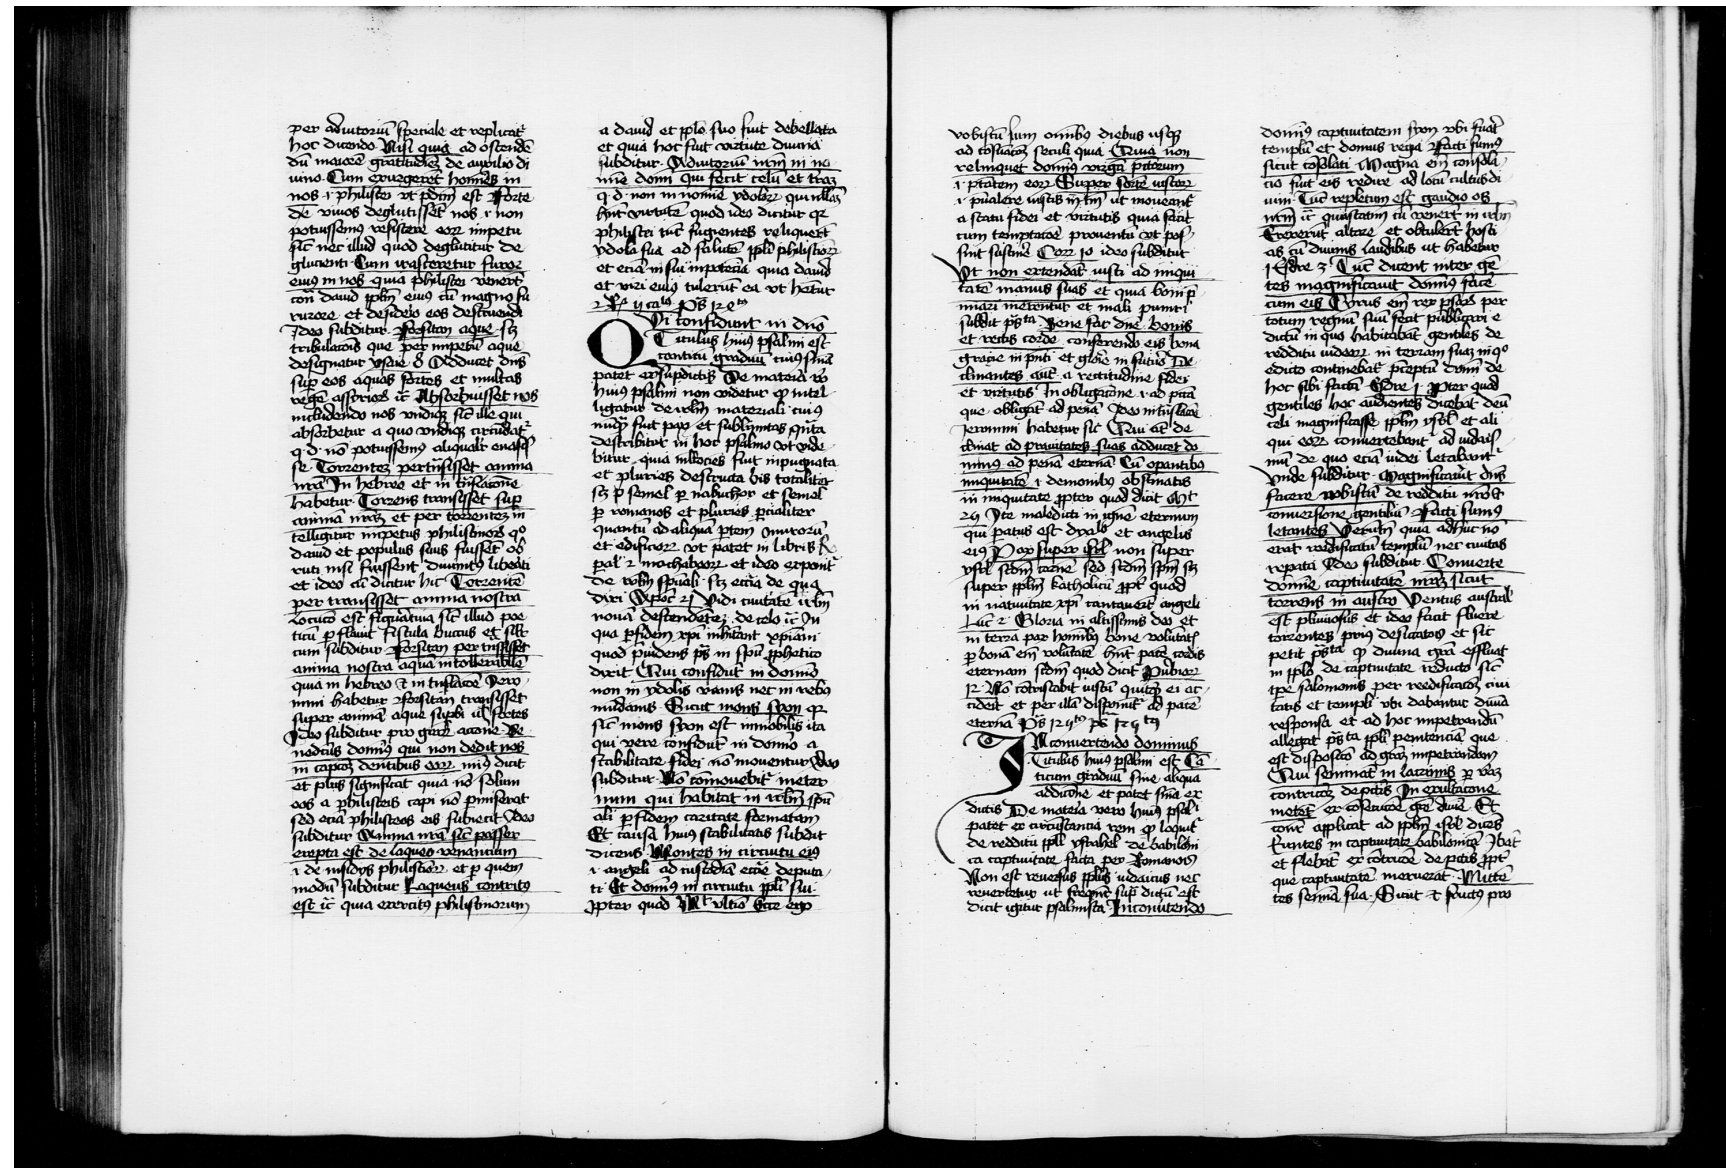 per adiutoriū speciale et replicat᷒
hoc dicendo Nisi quia ad ostendē
dū maiorē gratitudinē de auxilio di
uino Cum exurgerēt homīes in
nos .i. philistei vt p̄dcm̄ est Forte
de viuos deglutissēt nos .i. non
potuissemꝰ resistere eoꝝ impetu
sic̄ nec illud quod deglutitur de
glucienti Cum irasceretur furor
eiꝰ in nos quia philistei venerūt
cont̄ dauid pplm̄ eiꝰ cū magno fu
rore et desiderio eos destruendi
Ideo subditur Forsitan aque s.
tribulatōis que per impetū aque
designatur ysaie 8 Adducet dn̄s
sup̄ eos aquas fortes et multas
regē assyrioꝝ zc̄ Absorbuisset nos
includendo nos vndiqꝫ sic̄ ille qui
absorbetur a quo vndiqꝫ circūdat᷒
q.d. nō potuissemꝰ aliqualr̄ euasis
se Torrentem pertn̄sisset anima
nr̄a In hebreo et in tn̄slacōne
habetur Torrens transisset sup̄
animā nr̄aꝫ et per torrentem in
telligitur impetus philistinoꝝ qͦ
dauid et populus suus fuissēt ob
ruti nisi fuissent diuinitꝰ liberati
et ideo cū dicitur hic Torrentē
per transisset anima nostra
locuco est figuratiua sic̄ illud poe
ticū perflauit fistula buccas et
cum subditur Forsitan per tn̄sisset
anima nostra aquā intollerabilē
quia in hebreo et in tn̄slacōe Jero
nimi habetur forsitan transisset
super animā aque supbi ul̄ fortes
Ideo subditur pro gr̄aꝝ accōne Be
nedictus domīꝰ qui non dedit nos
in capcōꝫ dentibus eoꝝ
et plus significat quia nō solum
eos a philisteis capi nō p̄miserat
sed eciā philisteos eis subiecit Ideo
subditur Anima nr̄a sic̄ passer
erepta est de laqueo venancium
.i. de insidijs philistioꝝ et per quem
modū subditur Laqueus contritꝰ
est zc̄ quia exercitꝰ philistinorum
a dauid et pplo suo fuit debellata
et quia hoc fuit virtute diuina
subditur Adiutoriū nr̄m in no
mīe domī qui fecit celū et trāꝫ
q.d. non in nomine ydoloꝝ qui nullaꝫ
hn̄t virtutē quod ideo dicitur qꝛ
philistei tūc fugientes reliquerūt
ydola sua ad salutē ppli philistioꝝ
et eciā in sui inpotēciā quia dauid
et viri eiꝰ tulerūt ea vt hētur
Qui confidunt in dn̄o
Titulus huiꝰ psalmi est
canticū graduū cuiꝰ sn̄ia
patet ex supdictis De materia v̄o
huius psalmi non videtur qꝫ intel
ligatur de irlm̄ materiali cuiꝰ
nūqͣꝫ fuit pax et sublimitas qn̄ta
describitur in hoc psalmo vt vide
bitur quia mltociēs fuit inpugnata
et pluries destructa bis totaliter
s. semel p̄ nabuchor et semel
p̄ romanos et pluries p̄cialiter
quantū ad aliquā ptem̄ muroꝝ
et edificioꝝ vt patet in libris
et machabeoꝝ et ideo exponit᷒
de irlm̄ spūali s. ecc̄ia de qua
dixi Apoc̄ 21 Vidi ciuitatē irlm̄
nouā descendentēꝫ de celo zc̄ In
qua p̄ fidem xpi inhītant xpiani
quod p̄uidens ps̄ in spū pphetico
dixit Qui confidūt in domīo
non in ydolis vanis nec in rebꝰ
mūdanis Sicut mons syon qꝛ
sic̄ mons syon est inmobilis ita
qui vere confidūt in domīo a
stabilitate fidei nō mouentur Ideo
subditur Nō cōmouebit᷒ in eter
num qui habitat in irlm̄ spū
ali p̄ fidem caritate formatam
Et causa huiꝰ stabilitatis subdit
dicens Montes in circuitu eiꝰ
.i. angeli ad custodiā ecc̄ie deputa
ti Et domīꝰ in circuitu ppli sui
ppter quod Mt̄ vltīo Ecce ego
vobiscū sum omībꝰ diebus vsqꝫ
ad cōsūmacōꝫ seculi quia Quia non
relinquet domīꝰ virgā pctōrum
.i. ptātem eoꝝ Super sortē iustoꝝ
.i. p̄ualere iustis in tm̄ ut moueant᷒
a statu fidei et virtutis quia facit
cum temptacōe prouentū vt pos
sint sustinē Corꝝ 10 ideo subditur
Vt non extendāt iusti ad iniqui
tatē manus suas et quia boni p̄
miari merentur et mali puniri
subdit ps̄ta Bene fac dn̄e bonis
et rectis corde conferendo eis bona
gracie in p̄nti et glorie in futuro De
clinantes aut̄ a rectitudine fidei
et virtutis In obligacōne .i. ad pctā
que obligāt ad penā Ideo in tn̄slacōe
Jeronimi habetur sic Qui aut̄ de
clināt ad prauitates suas adducet do
minꝰ ad penā eternā Cū opantibꝰ
iniquitatē .i. demonibꝰ obstinatis
in iniquitate ppter quod dicit᷒ Mt̄
25 Ite maledicti in ignē eternum
qui paratus est dyalo et angelis
eiꝰ Pax super isrl̄ non super
ysrl̄ scdm̄ carnē sed scdm̄ spm̄ s.
super pplm̄ katholicū ppt̄ quod
in natiuitate xpi cantauerūt angeli
Luc̄ 2 Gloria in altissimis deo et
in terra pax homībꝰ bone voluntatꝭ
p̄ bonā em̄ volūtatē hn̄t pacē cordis
eternam scdm̄ quod dicit Prūbioꝝ
12 Nō cōtristabit iustū quitqͥd ei ac
cideit et per illā disponit᷒ ad pacē
eternā
In conuertendo dominus
Titulus huiꝰ psalmi est Cā
ticum graduū sine aliqua
addicōne et patet sn̄ia ex
dictis De materia vero huiꝰ psal
patet ex circūstantia rem qꝫ loquit᷒
de redditu ppli ysrahel de babiloni
ca captiuitate facta per Romanos
Non est reuersus pplus iudaicus nec
reuertetur ut freqn̄t sup̄ dictū est
dicit igitur psalmista In conuertendo
domīꝰ captiuitatem syon vbi fuat̄
templū et domus regia Facti sumꝰ
sicut cōsolati Magna em̄ consola
cio fuit eis redire ad locū cultus di
uini Tūc repletum est gaudio os
nr̄m zc̄ quāstatim cū venerūt in irlm̄
Erexerūt altare et obtulerūt hosti
as cū diuinis laudibus ut habetur
1 Esdre 3 Tūc dicent inter gē
tes magnificauit domīꝰ face
cum eis Cyrus em̄ rex psarꝝ per
totum regnū suū fecit publicari e
dictū in quo habitabāt gentiles de
redditu iudeoꝝ in terram suaꝫ in qͦ
edicto continebat᷒ p̄ceptū domī de
hoc sibi factū Esdre 1 Ppter quod
gentiles hoc audientes dicebāt deū
celi magnificasse pplm̄ ysrl̄ et ali
qui eoꝝ conuertebant᷒ ad iudais
mū de quo eciā iudei letabant᷒
Vnde subditur Magnificauit dn̄s
facere nobiscū de redditu nr̄o et
conuersione gentiliū Facti sumꝰ
letantes Verum̄ quia adhuc nō
erat reedificatū templū nec ciuitas
repata Ideo subditur Conuerte
domīe captiuitatē nr̄aꝫ sicut
torrens in austro Ventus austral̄
est pluuiosus et ideo facit fluere
torrentes prius desiccatos et sic
petit ps̄ta qꝫ diuina gr̄a effluat
in pplo de captiuitate reducto sic̄
tpe salomonis per reedificacōꝫ ciui
tatis et templi vbi dabantur diuīa
responsa et ad hoc impetrandū
allegat ps̄ta ppli penitenciā que
est disposicō ad gr̄aꝫ impetrandam
Qui semināt in lacrimis p̄ verā
contricōeꝫ de pctis In exultacōne
metēt ex cōsecucōe gr̄e diuīe Et
conr̄ applicat ad pplm̄ isrl̄ dicēs
Euntes in captiuitatē babilonicā Ibāt
et flebāt ex cōtricōe de pctis ppt̄
que captiuitatē meruerāt Mittē
tes semīa sua Sicut em̄ fructꝰ pro